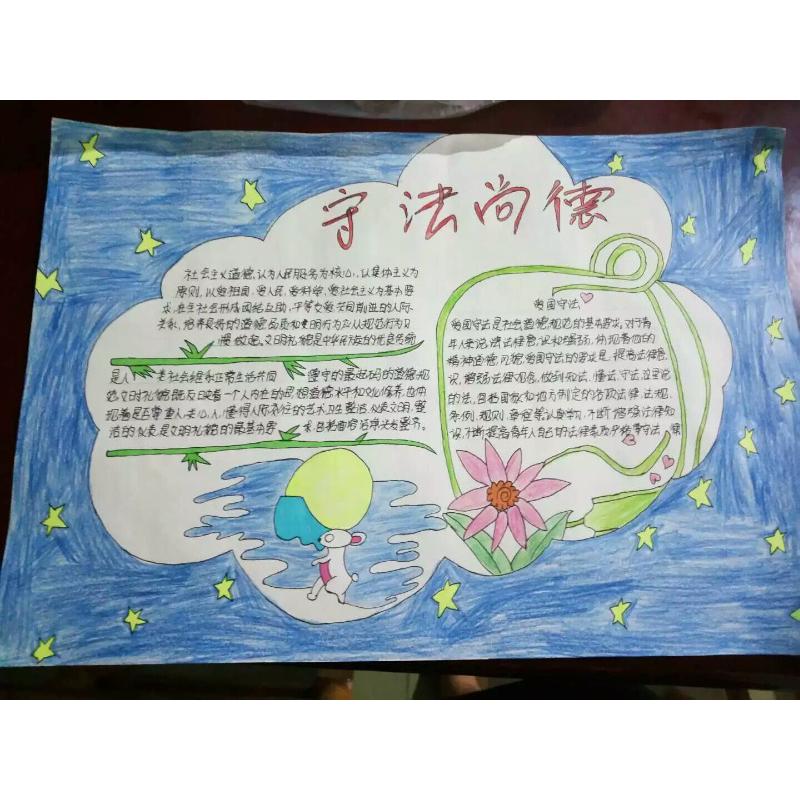 守法尚德
社会主义道德,认为人民服务为核心,以集体主义为
原则,以爱祖国,爱人民,爱科学,爱社会主义为基本要
求,在全社会形成团结互助,平等友爱共同前进的人际
关系,培养良好的道德品质和文明行为以规范行为习
惯做起。文明礼貌是中华民族的优良传统
是人 类社会组和正常生活共同 遵守的最起码的道德规
范文明礼貌既反映着一个人内在的思想道德水平和文化修养,应体
现着是否尊重人,关心人,懂得人际交往的艺术卫生整洁,仪表文明,整
洁的仪表是文明礼貌的最基本要 求,日括面容洁净头发整齐。
爱国守法
爱国守法是社会道德规范的基本要求,对于青
年人来说,讲法律意识和增强,体现着他的
精神道德,可能爱国守法的要求是,提高法律意
识,增强法律观念,做到知法、懂法、守法,这里说
的法,日括国家和地方制定的各项法律,法规,
条例,规则,章程等认真学习,不断增强法律知
识,不断提高青年人自己的法律素质严格遵守法